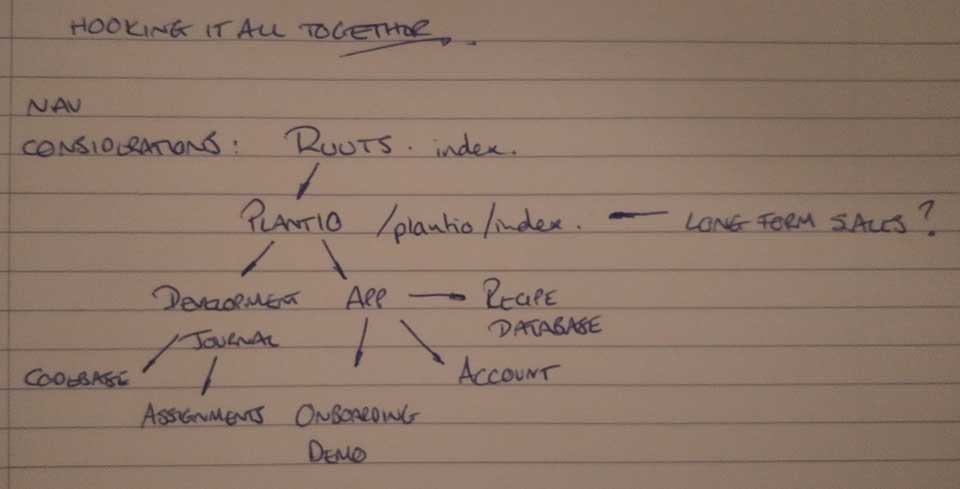 HOOKING IT ALL TOGETHER
NAV
CONSIDERATIONS: ROOTS. index.
PLANTIO /plantio/index. — LONG FORM SALES?
DEVELOPMENT APP RECIPE
JOURNAL DATABASE
CODEBASE ACCOUNT
ASSIGNMENTS ONBOARDING
DEMO